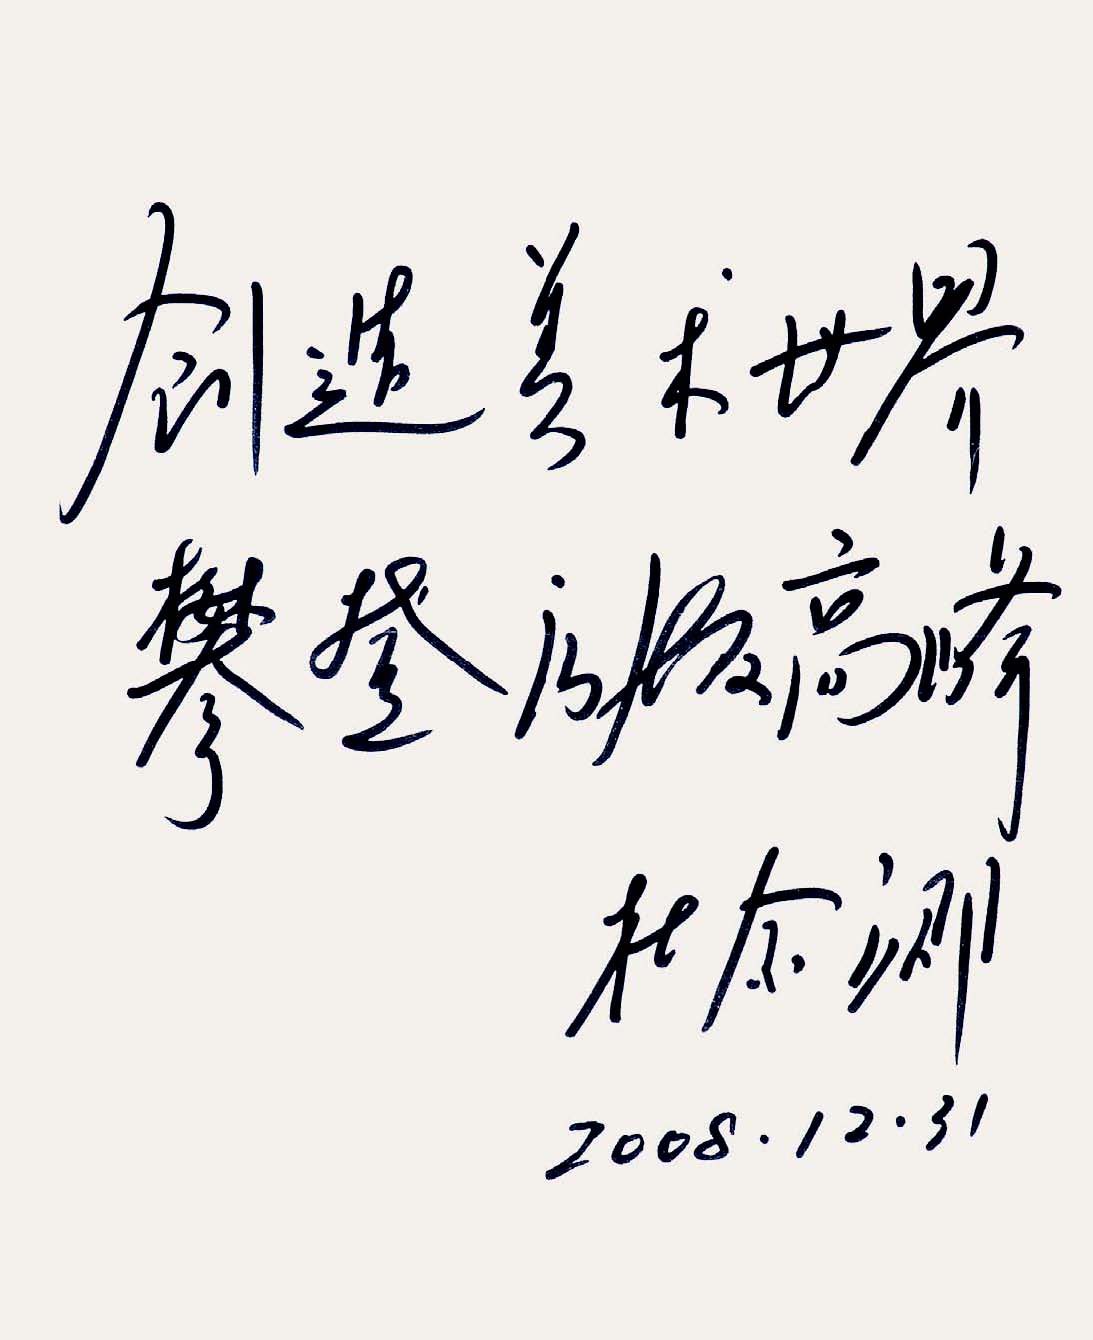 创造美术世界
攀登高峰
杜
2008.12.31